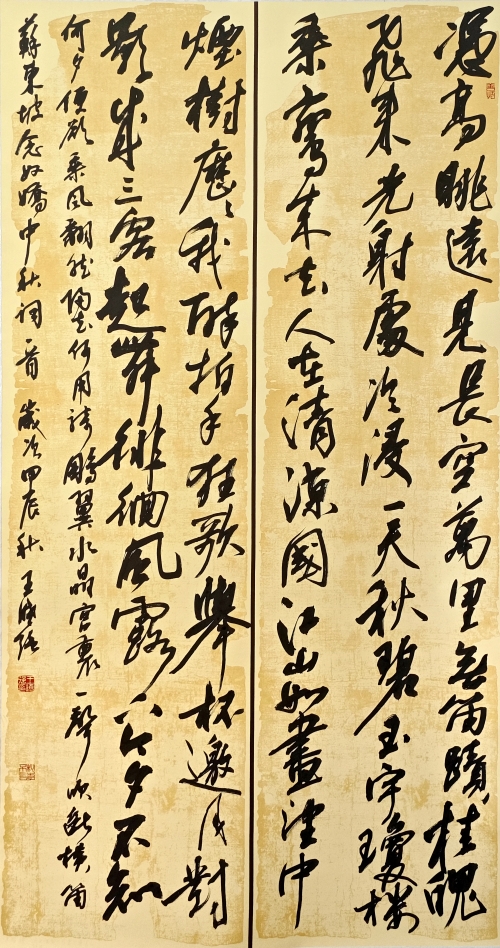 憑高眺遠見長空萬里無留蹟桂魄
飛來光射處冷浸一天秋碧玉宇瓊樓
乘鸞來去人在清涼國江山如畫望中
煙樹歷々我醉拍手狂歌舉杯邀月對
影成三客起舞徘徊風露下今夕不知
何夕便欲乘風翻然歸去何用騎鵬翼水晶宮裏一聲吹斷橫笛
蘇東坡念奴嬌中秋詞一首 歲次甲辰秋 王